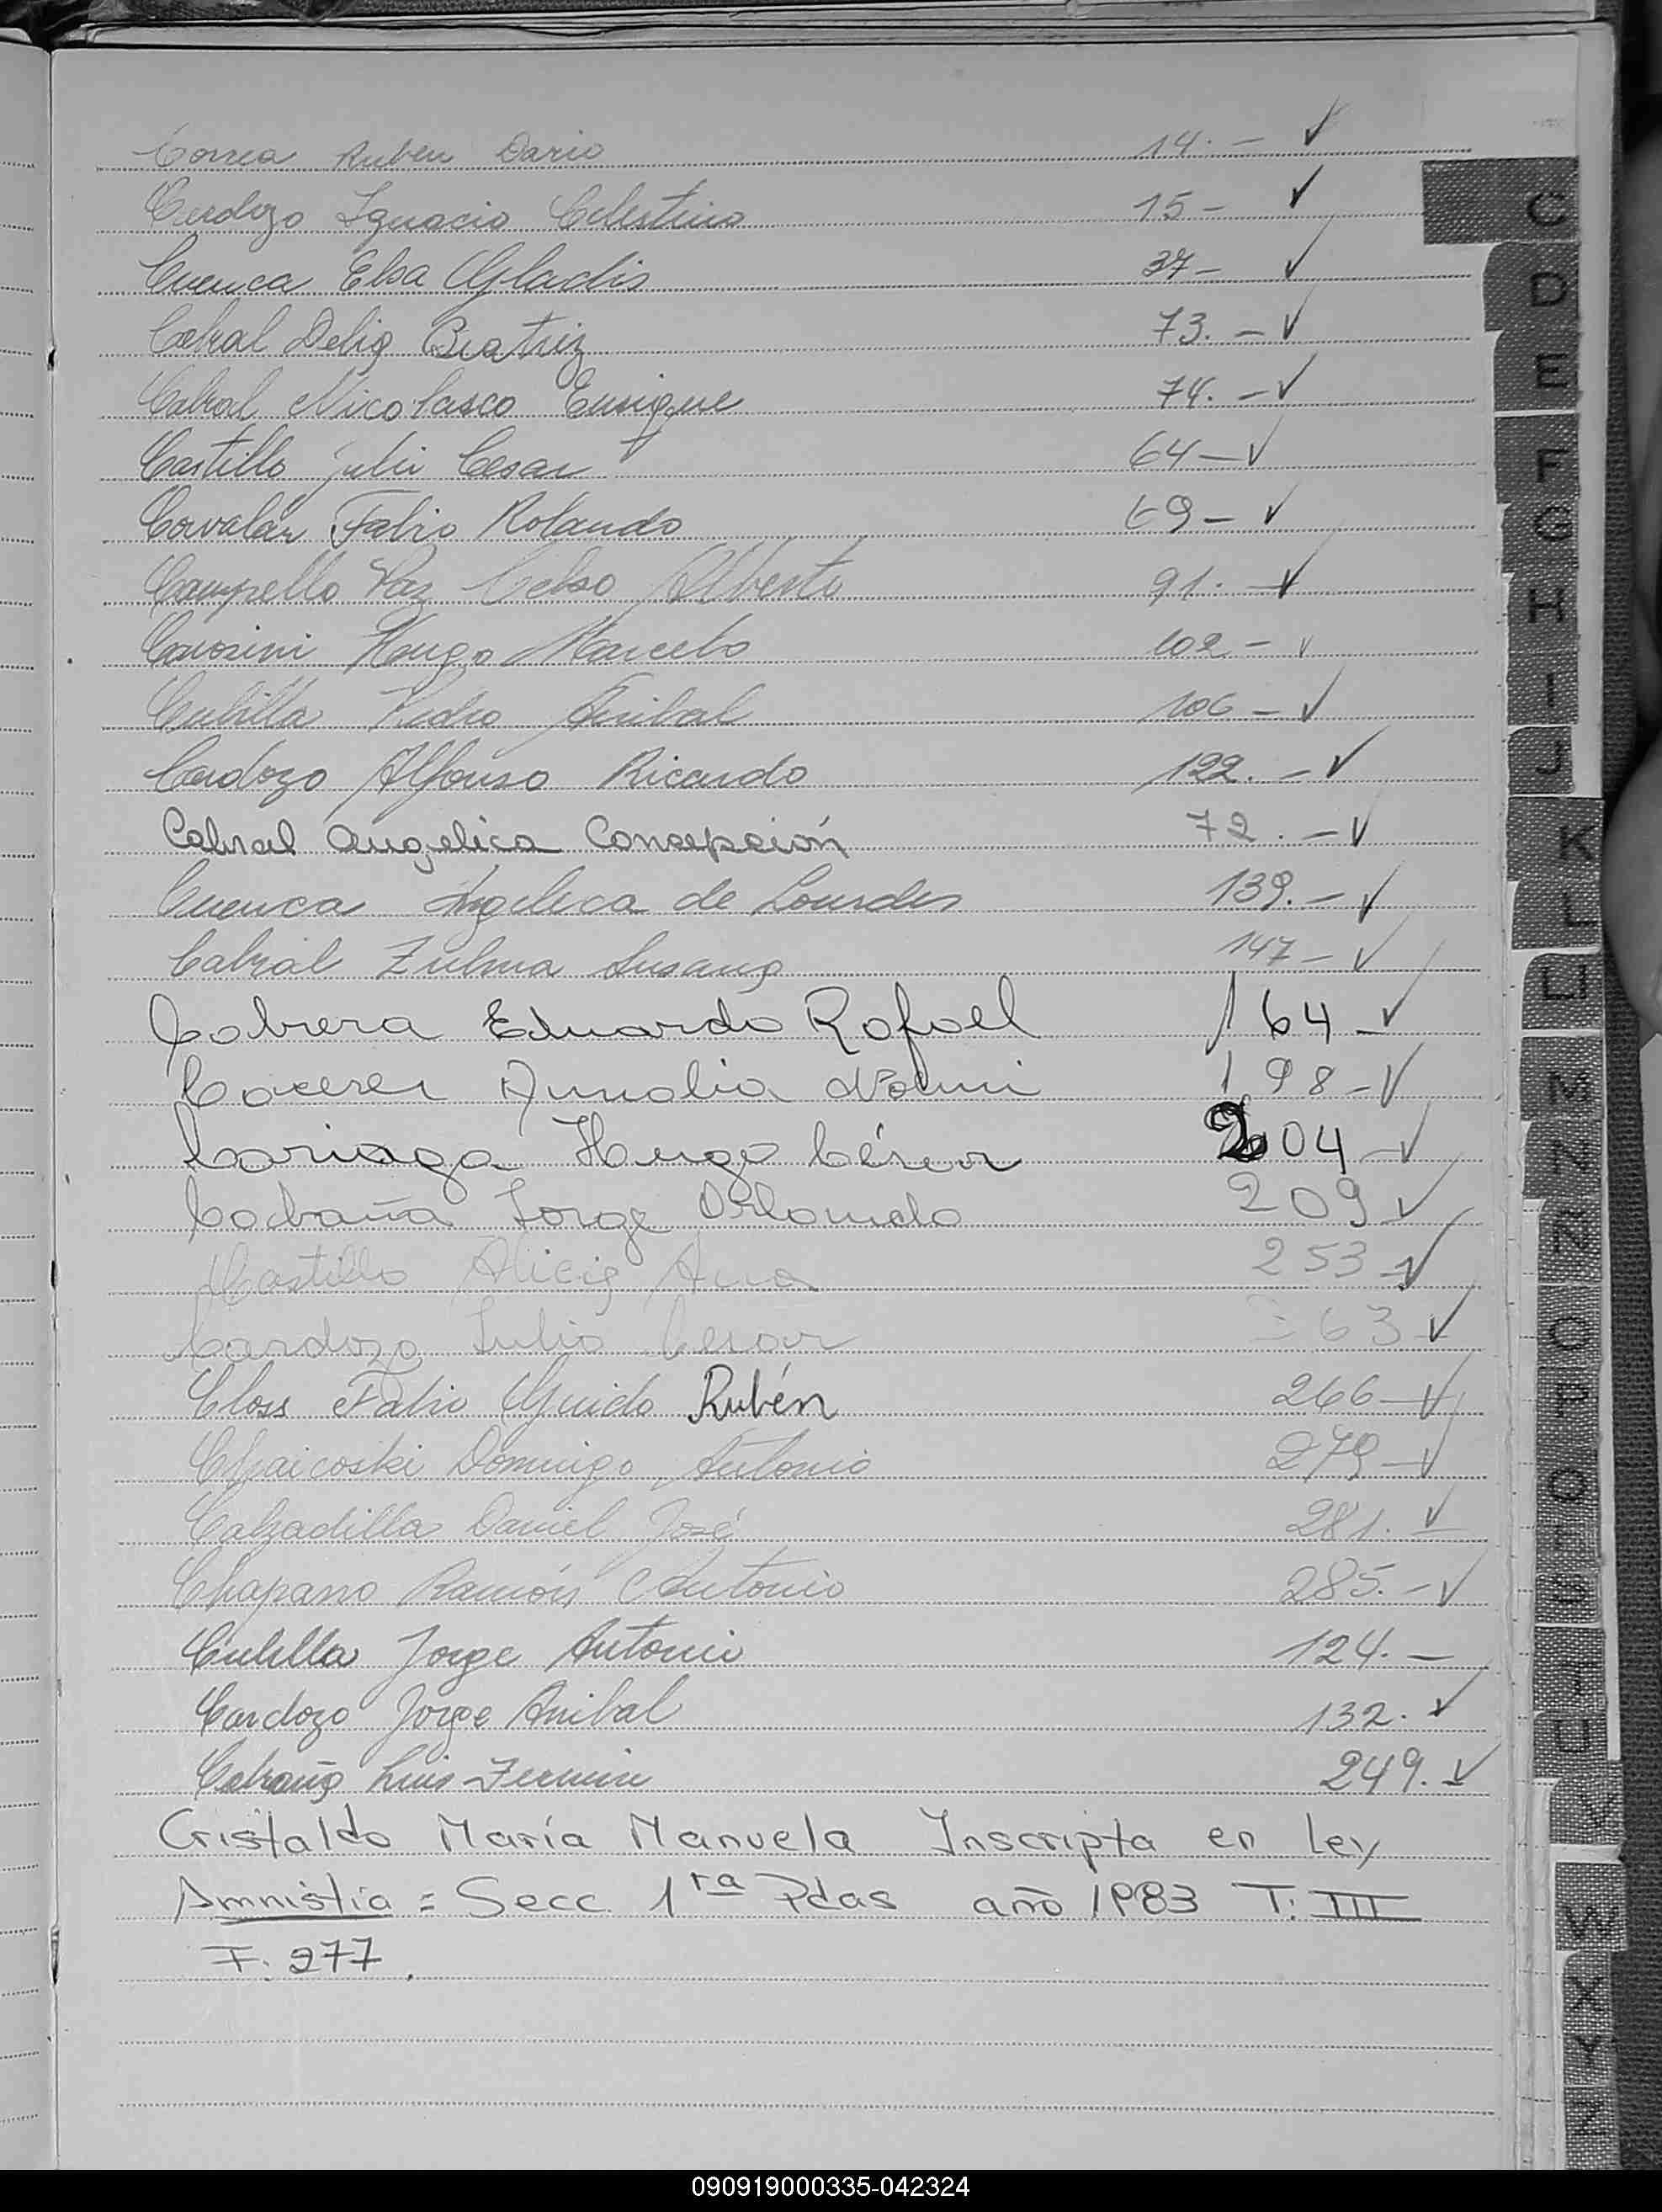 Correa Ruben Dario 14.- ✓
Cardozo Ignacio Celestino 15- ✓
Cuenca Elsa Gladis 37- ✓
Cabral Delia Beatriz 73.- ✓
Cabral Nicolasco Enrique 74.- ✓
Castillo Julio Cesar 64- ✓
Corvalán Fabio Rolando 69- ✓
Campello Paz Celso Alberto 91.- ✓
Hugo Marcelo 102- ✓
Cubilla Pedro Anibal 106- ✓
Cardozo Alfonso Ricardo 122.- ✓
Cabral Angelica Concepción 72.- ✓
Cuenca Angelica de Lourdes 139.- ✓
Cabral Zulma Susana 147- ✓
Cabrera Eduardo Rafael 164- ✓
Caceres Noemi 198- ✓
Cariaga Hugo César 204- ✓
Cabaña Jorge Orlando 209 ✓
Castillo Alicia Ana 253- ✓
Cardozo Julio Cesar 263- ✓
Closs Fabio Guido Rubén 266- ✓
Domingo Antonio 279- ✓
Calzadilla Daniel José 281.- ✓
Chapano Ramón Antonio 285.- ✓
Cubilla Jorge Antonio 124.-
Cardozo Jorge Anibal 132.- ✓
Cabaña Luis Fermin 249.- ✓
Cristaldo María Manuela Inscripta en Ley
Amnistía = Secc. 1ra Pdas año 1983 T: III
F. 277.
C
D
E
F
G
H
I
J
K
L
LL
M
N
Ñ
O
P
Q
R
S
T
U
V
W
X
Y
Z
090919000335-042324